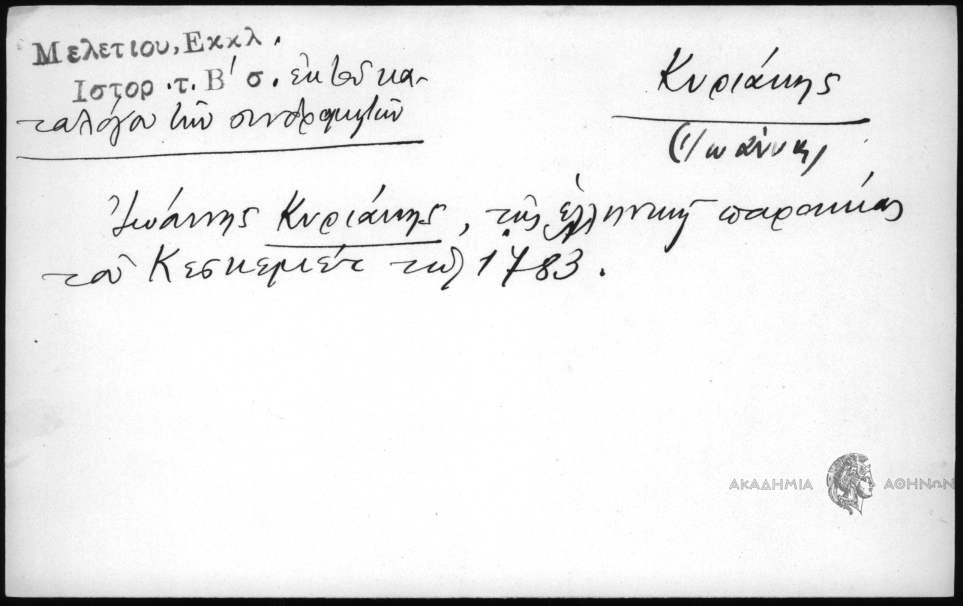 Μελετίου, Εκκλ.
Ιστορ. τ. Β' σ. ἐκ τοῦ κα-
ταλόγου τῶν συνδρομητῶν
Κυριάκης
(Ἰωάννης)
Ἰωάννης Κυριάκης, τῆς ἑλληνικῆς παροικίας
τοῦ Κεσκεμιέτ τῷ 1783.
ΑΚΑΔΗΜΙΑ ΑΘΗΝΩΝ